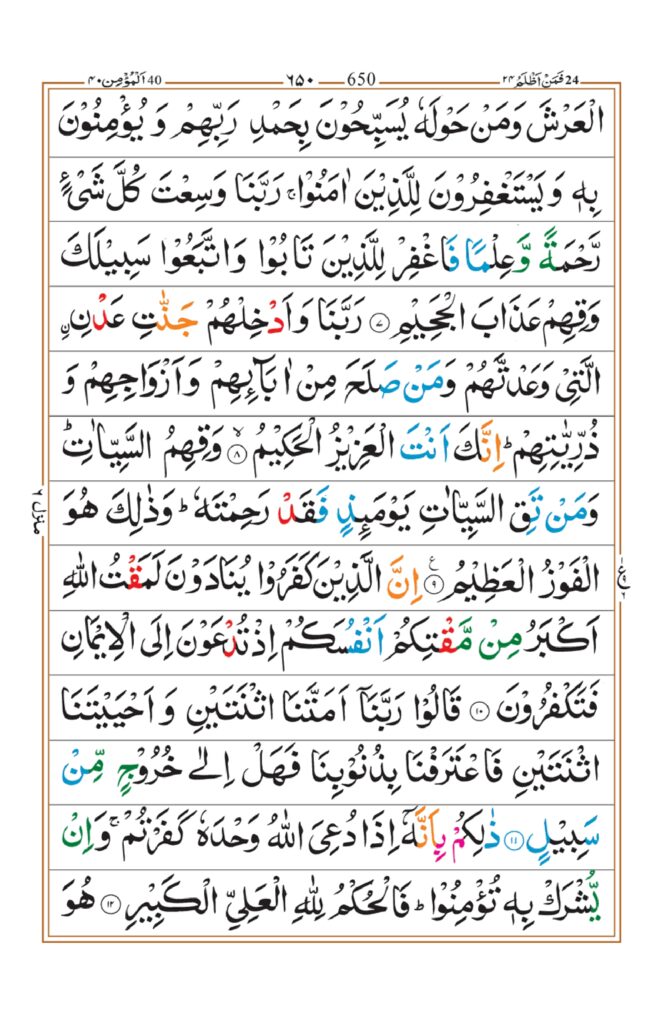 24 فَمَنْ اَظْلَمُ ٢٤ 650 ٦٥٠ 40 اَلْمُؤْمِن ٤٠
الْعَرْشَ وَمَنْ حَوْلَهٗ يُسَبِّحُوْنَ بِحَمْدِ رَبِّهِمْ وَ يُؤْمِنُوْنَ
بِهٖ وَيَسْتَغْفِرُوْنَ لِلَّذِيْنَ اٰمَنُوْا ۚ رَبَّنَا وَسِعْتَ كُلَّ شَیْءٍ
رَّحْمَةً وَّعِلْمًا فَاغْفِرْ لِلَّذِيْنَ تَابُوْا وَاتَّبَعُوْا سَبِيْلَكَ
وَقِهِمْ عَذَابَ الْجَحِيْمِ ۝٧ رَبَّنَا وَاَدْخِلْهُمْ جَنّٰتِ عَدْنِ ۟ن
الَّتِیْ وَعَدْتَّهُمْ وَمَنْ صَلَحَ مِنْ اٰبَآئِهِمْ وَاَزْوَاجِهِمْ وَ
ذُرِّيّٰتِهِمْ ؕ اِنَّكَ اَنْتَ الْعَزِيْزُ الْحَكِيْمُ ۝٨ ۙ وَقِهِمُ السَّيِّاٰتِ ؕ
وَمَنْ تَقِ السَّيِّاٰتِ يَوْمَئِذٍ فَقَدْ رَحِمْتَهٗ ؕ وَذٰلِكَ هُوَ
الْفَوْزُ الْعَظِيْمُ ۝٩ ع اِنَّ الَّذِيْنَ كَفَرُوْا يُنَادَوْنَ لَمَقْتُ اللّٰهِ
اَكْبَرُ مِنْ مَّقْتِكُمْ اَنْفُسَكُمْ اِذْ تُدْعَوْنَ اِلَى الْاِيْمَانِ
فَتَكْفُرُوْنَ ۝١٠ قَالُوْا رَبَّنَاۤ اَمَتَّنَا اثْنَتَيْنِ وَ اَحْيَيْتَنَا
اثْنَتَيْنِ فَاعْتَرَفْنَا بِذُنُوْبِنَا فَهَلْ اِلٰى خُرُوْجٍ مِّنْ
سَبِيْلٍ ۝١١ ذٰلِكُمْ بِاَنَّهٗۤ اِذَا دُعِیَ اللّٰهُ وَحْدَهٗ كَفَرْتُمْ ۚ وَاِنْ
يُّشْرَكْ بِهٖ تُؤْمِنُوْا ؕ فَالْحُكْمُ لِلّٰهِ الْعَلِیِّ الْكَبِيْرِ ۝١٢ هُوَ
منزل ٦